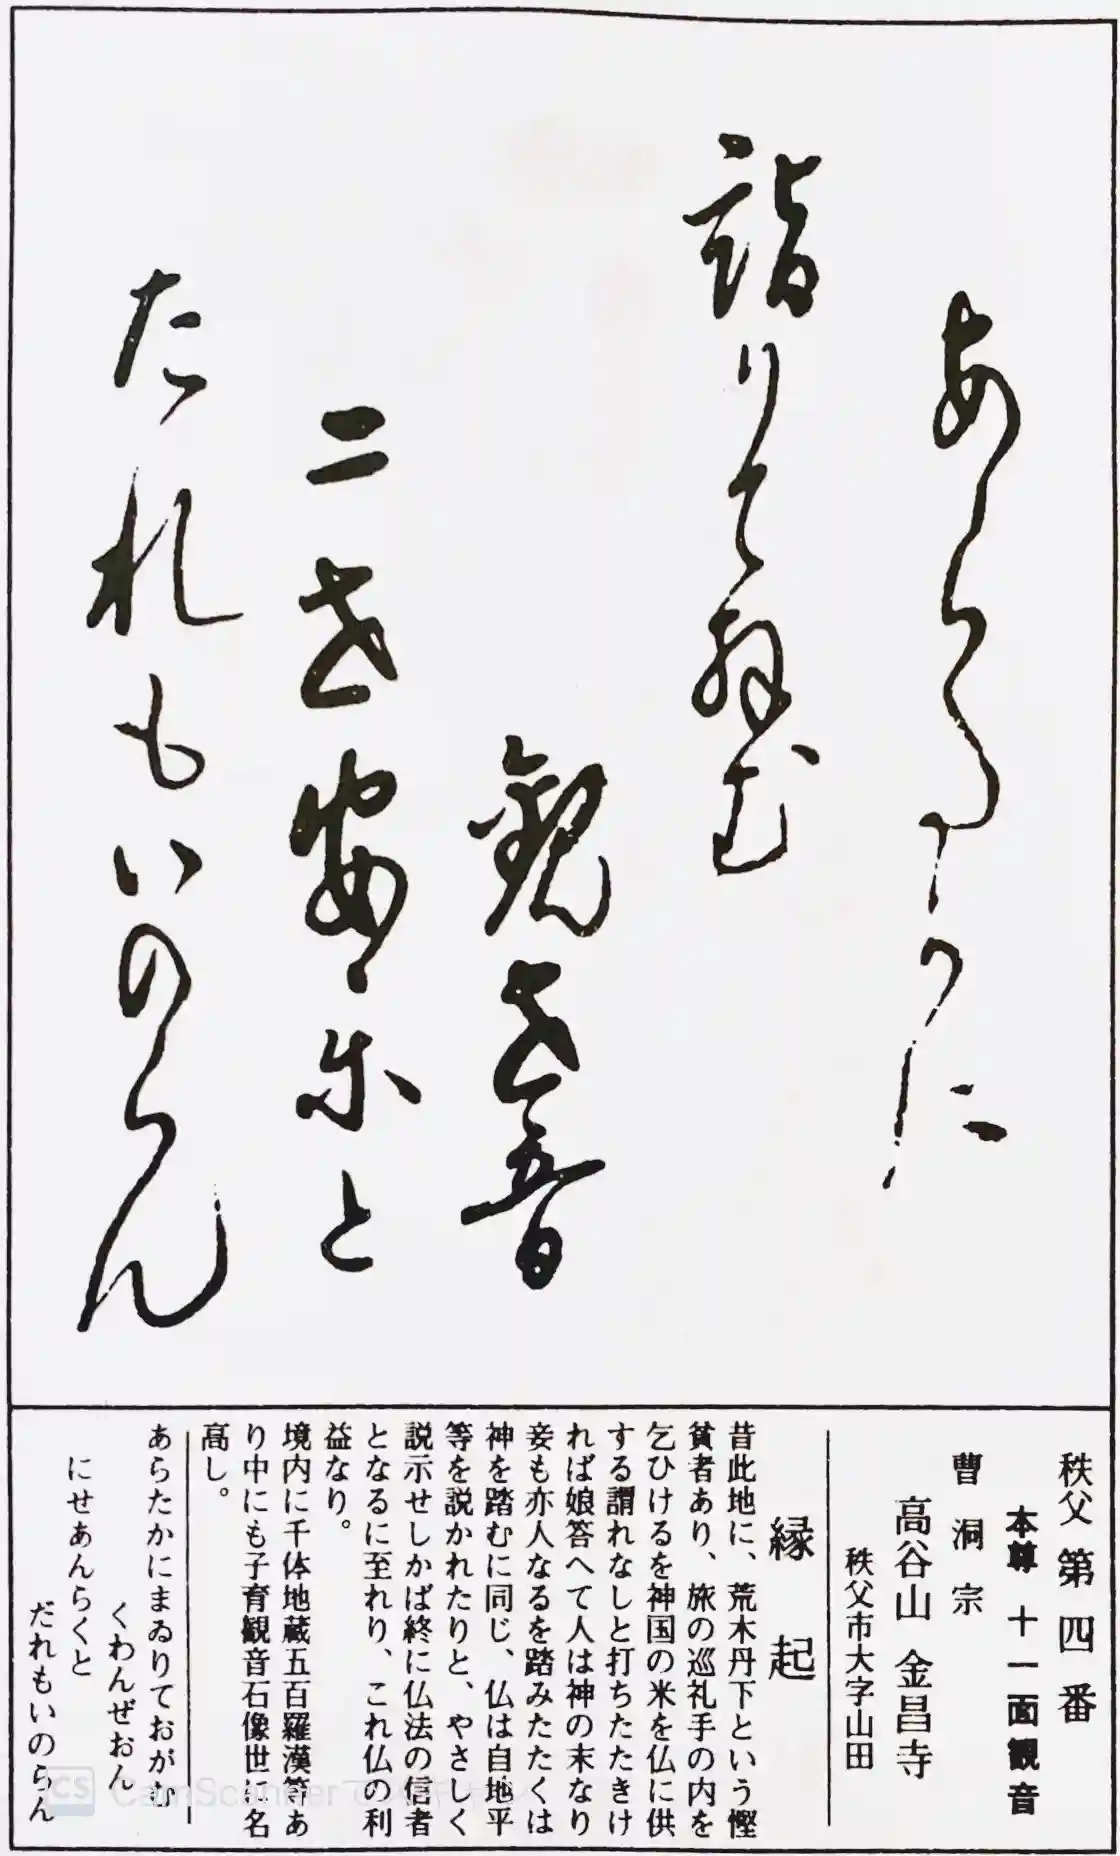 あらたかに
詣りておがむ
観世音
二世安楽と
たれもいのらん
秩父第四番
本尊 十一面観音
曹洞宗
高谷山 金昌寺
秩父市大字山田
縁起
昔此地に、荒木丹下という慳
貧者あり、旅の巡礼手の内を
乞ひけるを神国の米を仏に供
する謂れなしと打ちたたきけ
れば娘答へて人は神の末なり
妾も亦人なるを踏みたたくは
神を踏むに同じ、仏は自地平
等を説かれたりと、やさしく
説示せしかば終に仏法の信者
となるに至れり、これ仏の利
益なり。
境内に千体地蔵五百羅漢等あ
り中にも子育観音石像世に名
高し。
あらたかにまゐりておがむ
くわんぜおん
にせあんらくと
だれもいのらん
CS CamScannerでスキャン